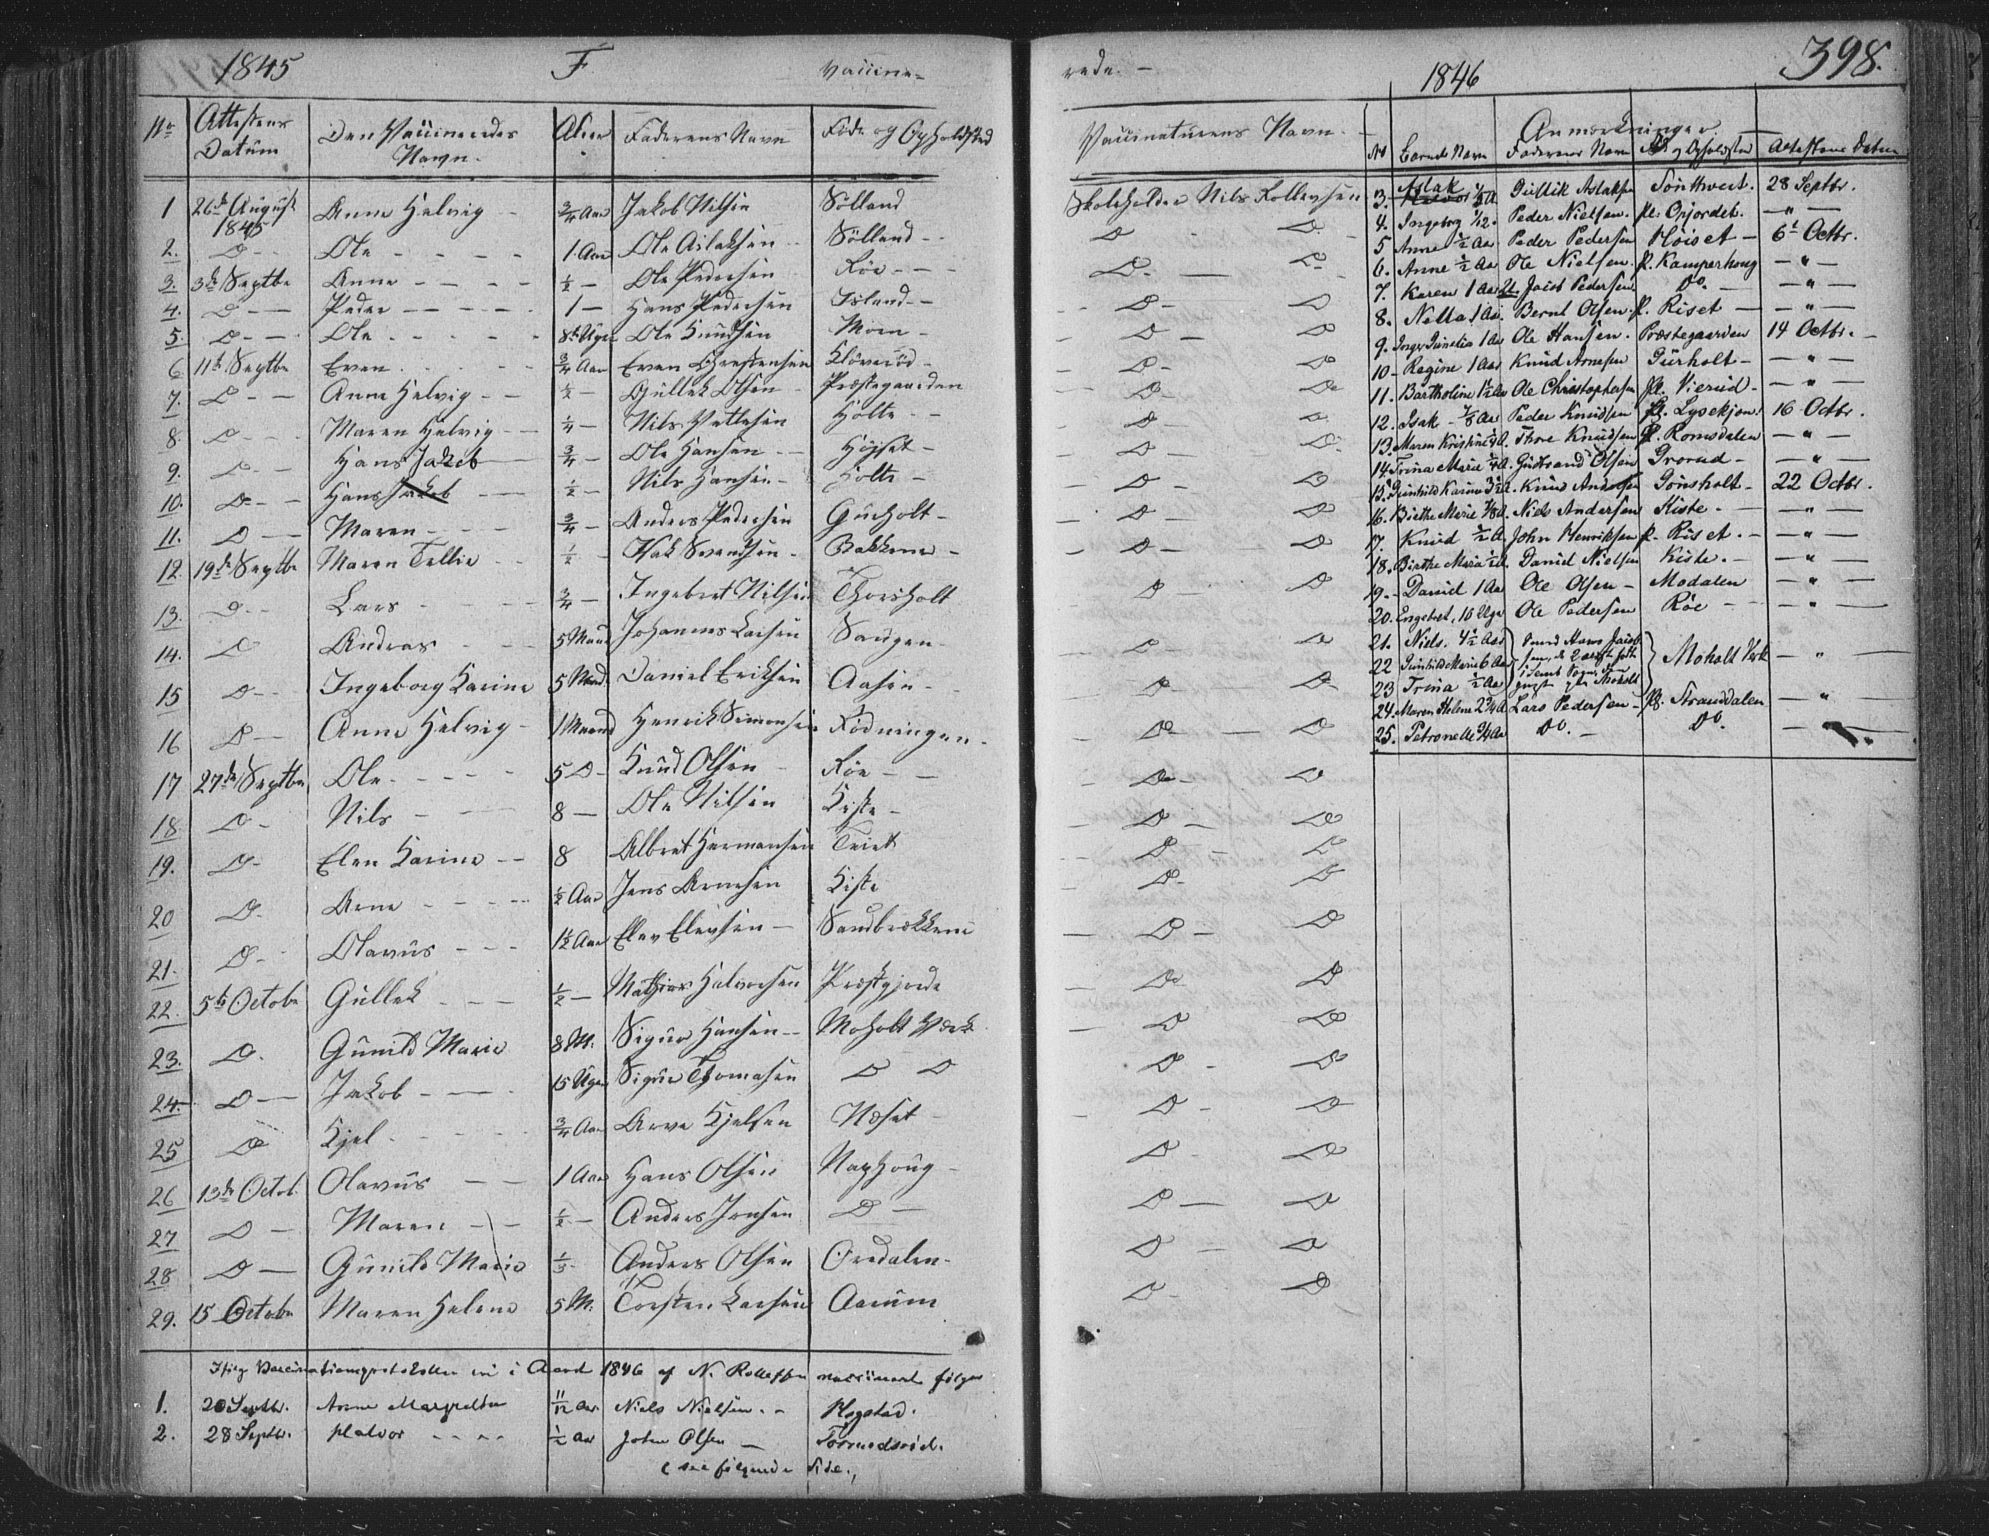 1845 F Vaccine-
No Attestens Datum Den Vaccineredes Navn. Alder Faderens Navn Føde og Opholdsted
1 26de August 1845 Anne Helvig - 3/4 Aar Jakob Nilsen Sølland
2. D - - Ole - - - - 1 Aar Ole Aslaksen - Sølland - -
3. 3de Septbr Anne - - - - 1/2 - Ole Pedersen Røe - - -
4. D - - Peder - - - - 1 - Hans Pedersen Island - -
5. D - - Ole - - - - 8te Uger Ole Knudsen Moen -
6 11te Septbr Even - - - - 3/4 Aar Even Christensen Kløverød -
7. D - - Anne Helvig - - 1/2 - Gullek Olsen - Præstegaarden
8. D - - - Maren Helvig - - 1/4 - Nils Vetlesen Holte - -
9. D - - Hans Jakob 3/4 - Ole Hansen - - Høyset -
10. D - - Hans Jakob - - 1/2 - Nils Hansen - Holte -
11. D - - Maren - - - 3/4 - Anders Pedersen Gurholt -
12. 19de Septbr Maren Tellie - 1/2 - Isak Svendsen - Bakkene -
13. D - - Lars - - - - 3/4 - Ingebret Nilsen Thorsholt
14. D Andreas - - - 5 Maan Johannes Larsen Saugen -
15 D - - Ingeborg Karine 5 Maan. Daniel Eriksen Aasen - -
16 D - - Anne Helvig - 1 Maaned Henrik Simonsen Rødningen -
17 27de Septbr Ole - - - - 5 D - Knud Olsen - Røe - -
18. D - Nils - - - 8 - Ole Nilsen Kiste -
19. D - Elen Karine - - 8 Albret Hermansen Tviet
20 D. Arne - - - - 1/2 Aar Jens Arnesen Kiste
21. D - Olavus - - - 1 1/2 Aar Elev Elevsen - Sandbækkene
22. 5te Octobr Gullek - - - 1/2 - Mathias Halvorsen Præstgjorde
23. D. Gunild Marie 8 M. Sigur Hansen - - Moholt Værk
24. D - - Jakob - - - 15 Uger Sigur Thomasen D D
25 D Kjel - - - - 3/4 Aar Arve Kjelsen Næset -
26 13de Octob. Olavus - - 1 Aar Hans Olsen Naphoug -
27 D - Maren - - 1/2 - Anders Jensen D -
28 D - Gunild Marie 1/3 - Anders Olsen Øredalen -
29. 15 Octobr Maren Helene 5 M. Torsten Larsen Aarum
Vaccinationsprotokollen i Aaret 1846 af N. Rollefsen vaccinert følger
1. 20 Septbr. Anne Margrethe 11/12 Aar Niels Nielsen - - Hogstad.
2. 28 Septbr. Halvor - - - - 1/2 Aar John Olsen -
(see følgende Side.)
rede. - 1846 398.
Vaccinateurens Navn. - Anmærkninger.
No Barnets Navn Faderens Navn og Opholdsted Attestens Datum
Skoleholder Nils Rollevsen 3. Aslak 1/2 A Gullik Aslaksen Tonthveit. 28 Septbr.
D - D - 4. Ingeborg 1/12. Peder Nielsen. pl: Opjordet. - " -
5 Anne 1/2 Aar Peder Pedersen Høiset - 6te Octbr.
D - - D - 6. Anne 1/2 Aar Ole Nielsen. pl. Kamperhoug - " -
7. Karen 1 Aar Jacob Pedersen Do. - - " -
- D - D 8. Nella 1 Aar. Bernt Olsen. pl. Riset - - " -
- D - D 9. Inger 1 Aar Ole Hansen. Præstegaarden 14 Octbr. -
- D - D 10 - Regine 1 Aar Knud Arnesen Gurholt - - " -
- D - D 11. Bartholine 1 1/2 Aar Ole Christophersen pl. Vierud - - " -
- D - D 12. Isak - 7/8 Aar Peder Knudsen pl. Lysekjon. 16 Octbr.
- D - D - 13. Maren Kristine 1/2 A. Thore Knudsen pl. Romsdalen - " -
14 Trina Marie 1/4 A. Gudbrand Olsen Grorud - - " -
- D - D 15. Gunhild Karine 3 1/2 A. Knud Andersen Gonsholt - 22 Octbr.
- D - D 16. Birthe Marie 7/8 A. Niels Andersen Kiste. - - " -
- D - D 17. Knud 1/2 A John Henriksen pl. Riset. - - " -
18. Birthe Maria 1/2 A. Daniel Nielsen Kiste. - - " -
- D - D 19. - Daniel 1 Aar Ole Olsen - Modalen - " -
20. Engebret, 10 Uger Ole Pedersen Røe - - - " -
- D - D 21. Niels. 4 1/2 Aar
22 Gunhild Marie 6 Aar Moholt Værk - " -
- D - - D 23 Trina 1/2 Aar
24. Maren Helene 2 3/4 A Lars Pedersen - pl. Stranddalen - " -
- D - - D 25. Petronelle 3/4 Aar Do. - Do. - -
- D - D
- D - D
- D - D
- D - D
- D - D
- D D
- D D
- D - D
- D - D
D - D
D - - D
D - - D
D - D